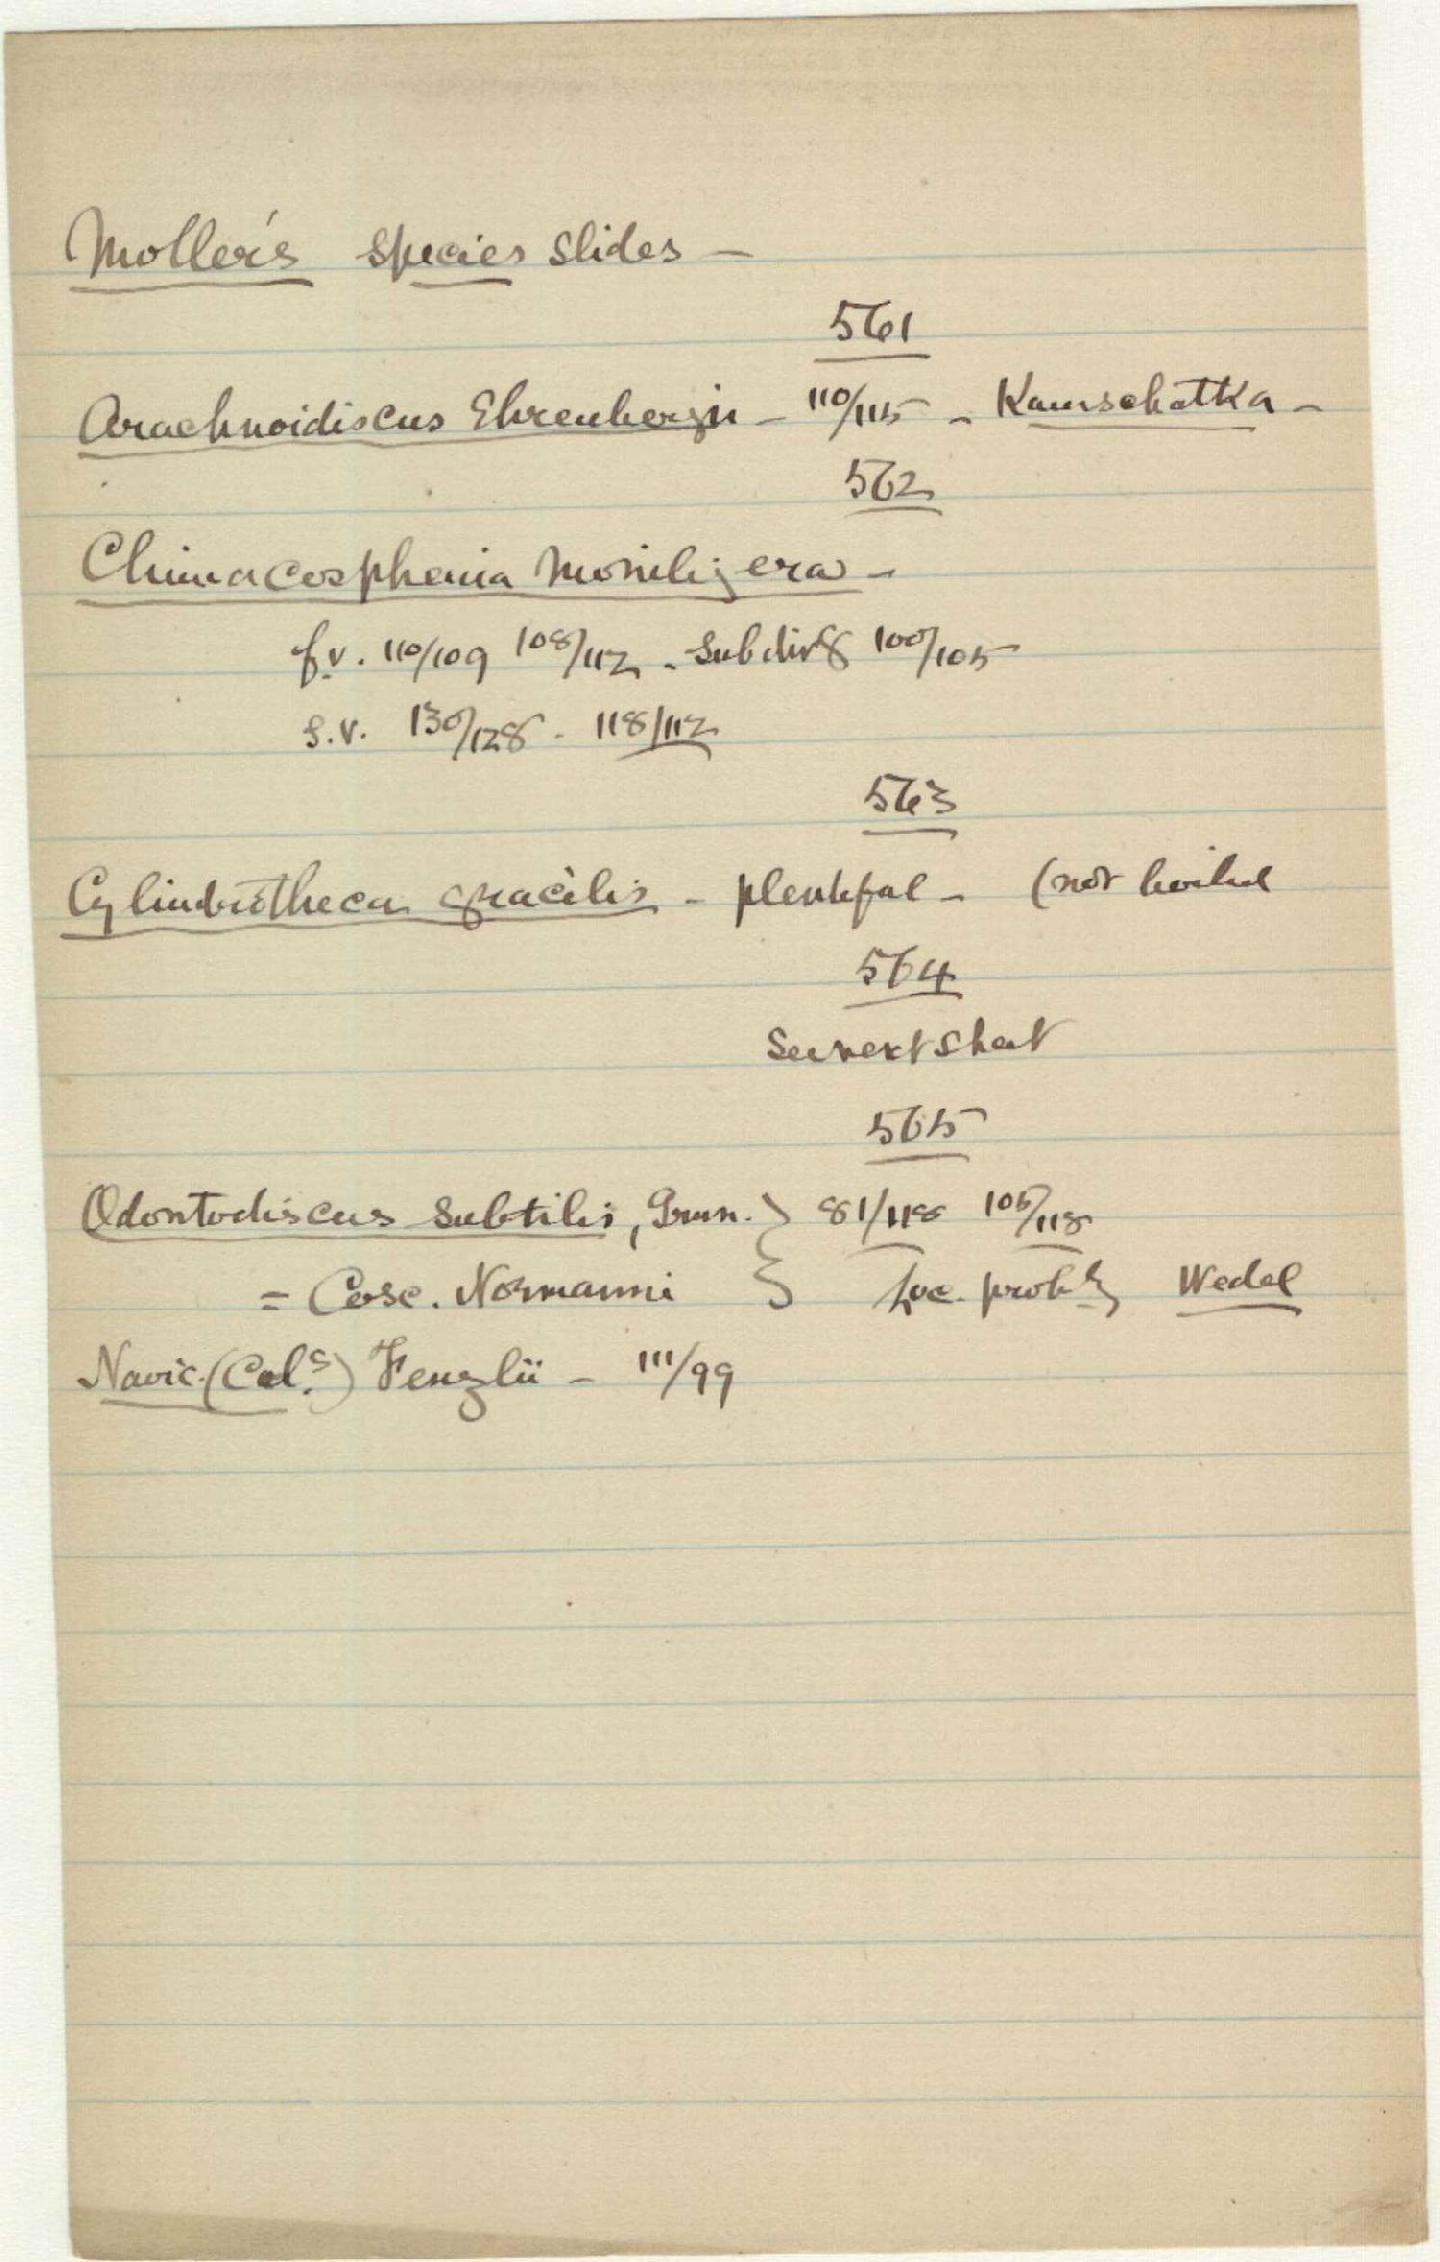 Moller's species slides –
561
Arachnoidiscus Ehrenbergii – 110/115 – Kamschatka –
562
Climacosphenia Moniligera –
f.v. 110/109 108/112 – Subdivg 100/105
s.v. 130/128 – 118/112
563
Cylindrotheca gracilis – plentiful – (not boiled
564
See next sheet
565
Odontodiscus subtilis, Grun. } 81/118 105/118
= Cosc. Normanni } Loc. probly Wedel
Navic. (Cal.s) Fenzlii – 111/99